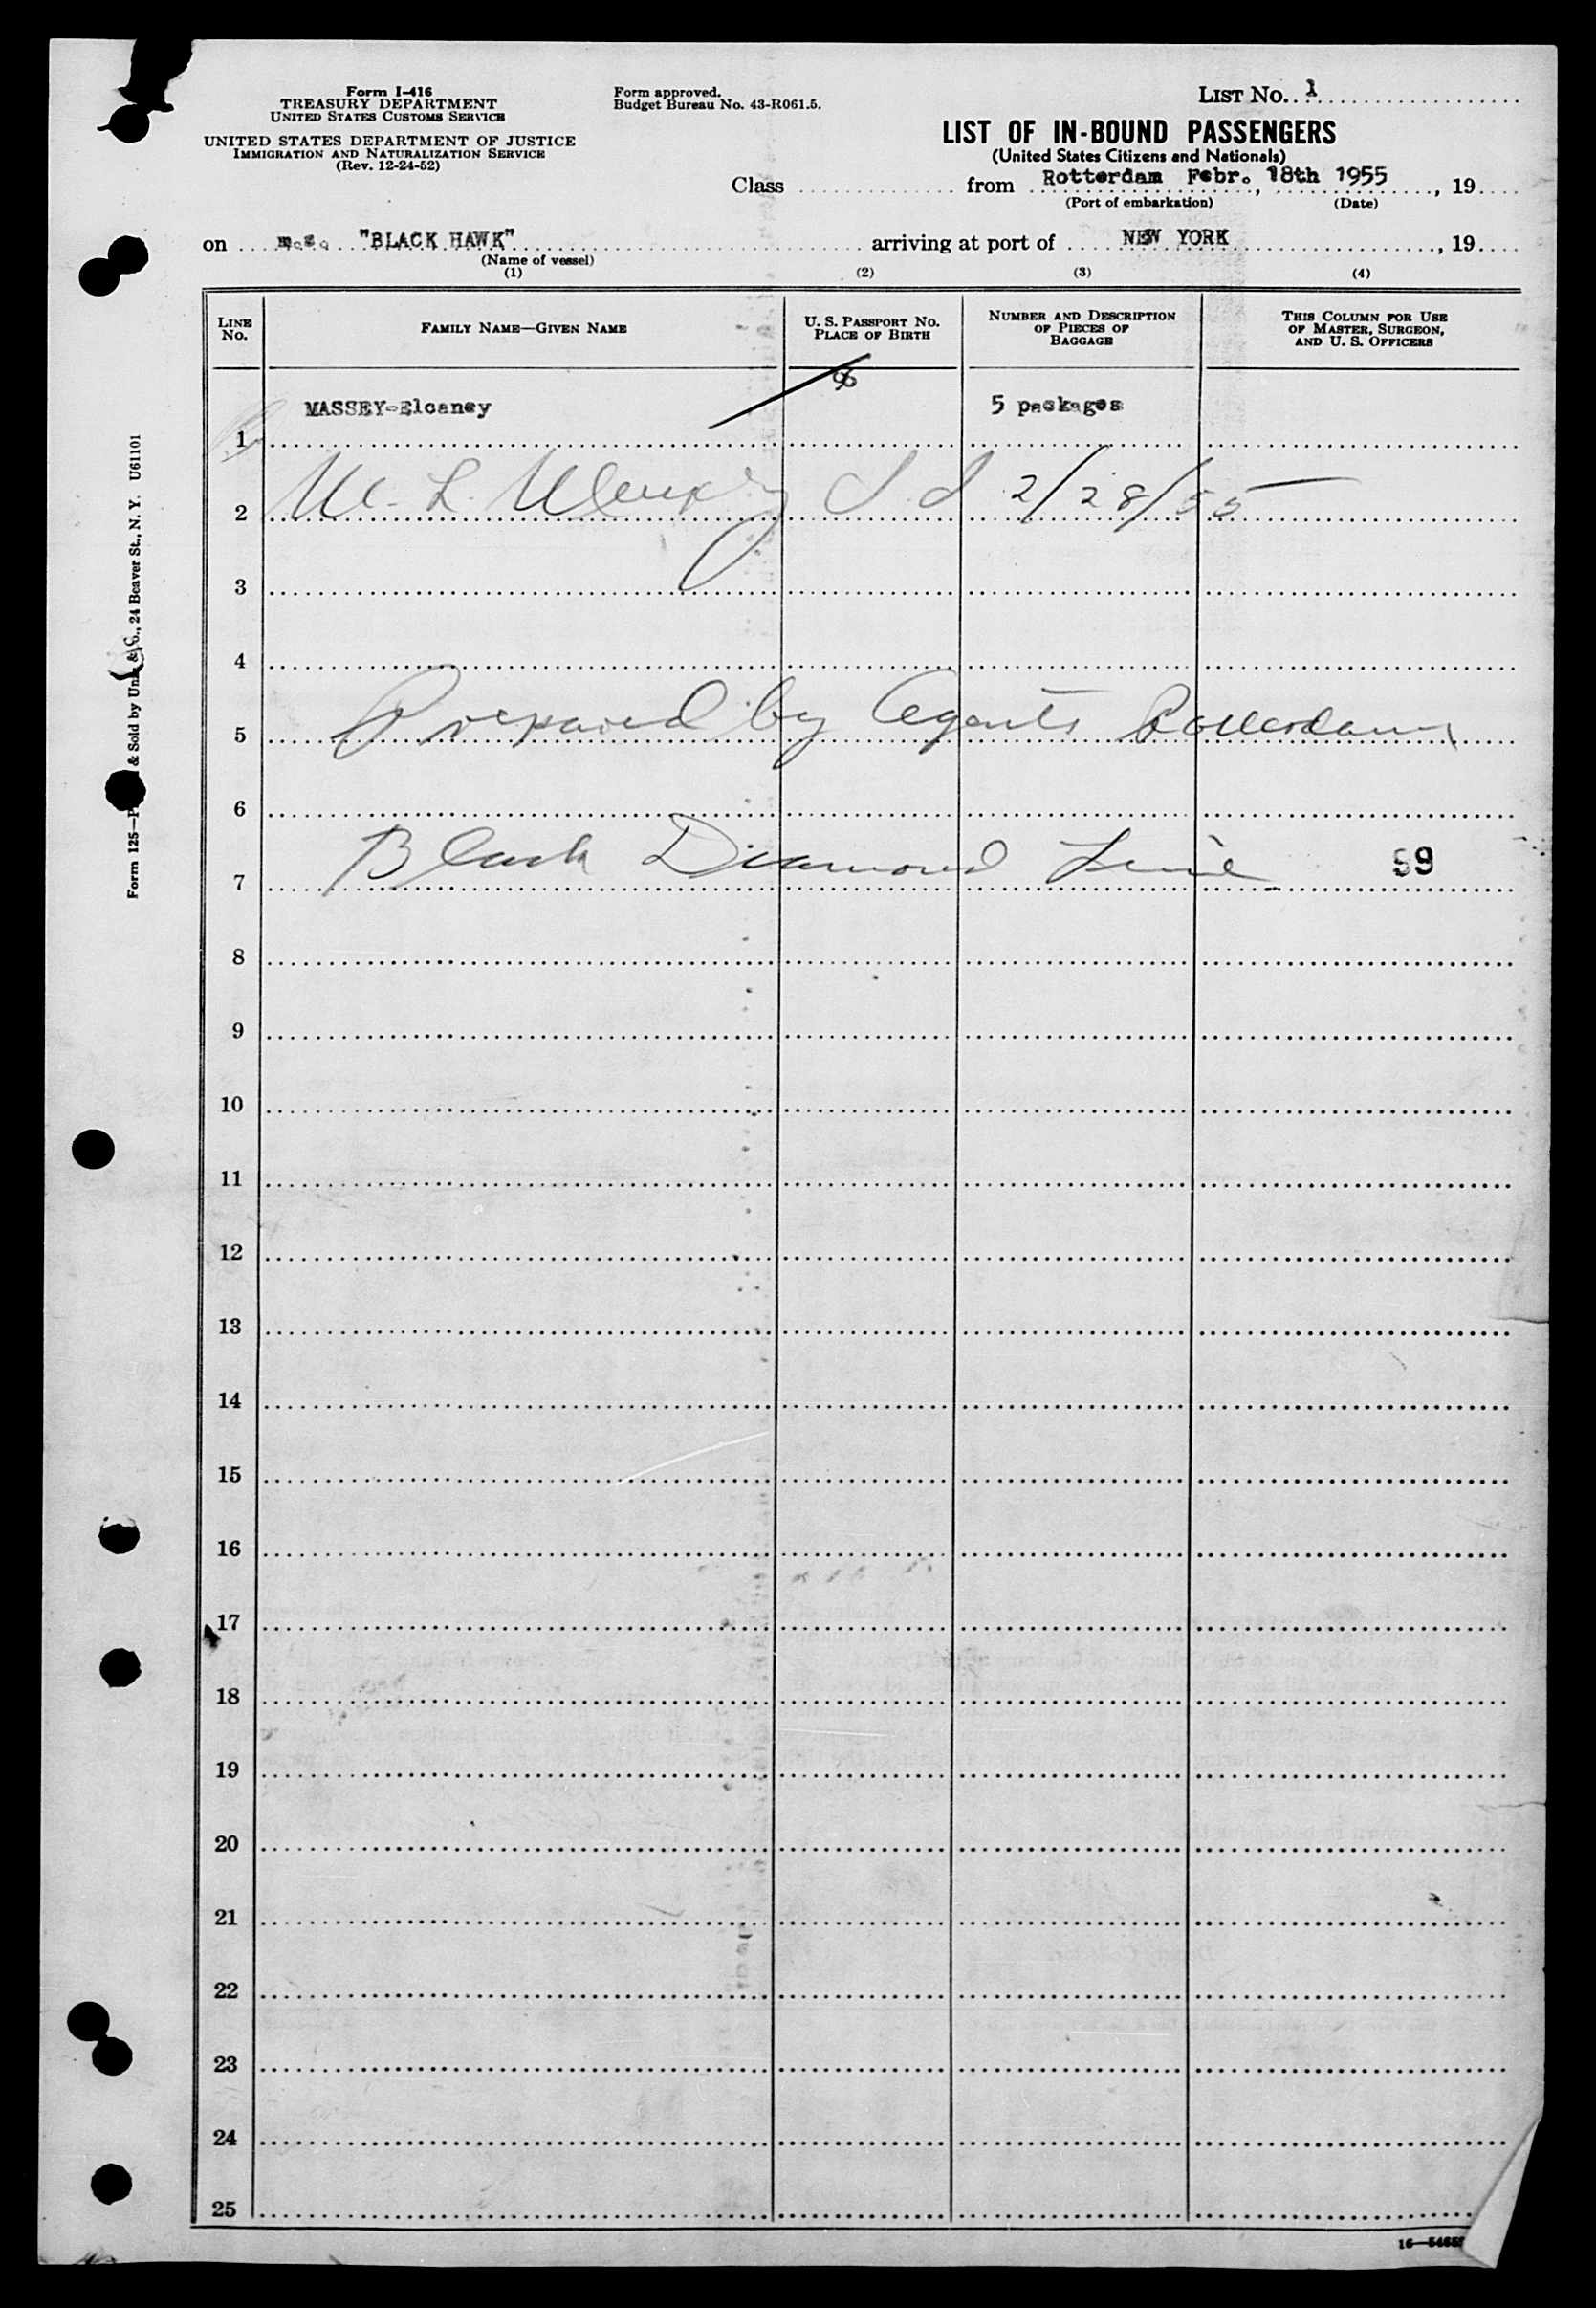 Form I-416
TREASURY DEPARTMENT
UNITED STATES CUSTOMS SERVICE
UNITED STATES DEPARTMENT OF JUSTICE
IMMIGRATION AND NATURALIZATION SERVICE
(Rev. 12-24-52)
Form approved.
Budget Bureau No. 43-R061.5.
LIST No. 1
LIST OF IN-BOUND PASSENGERS
(United States Citizens and Nationals)
Class from Rotterdam Febr. 18th 1955, 19
(Port of embarkation) (Date)
on m.s. "BLACK HAWK" arriving at port of NEW YORK, 19
(Name of vessel)
(1) (2) (3) (4)
LINE No. FAMILY NAME—GIVEN NAME U. S. PASSPORT No. PLACE OF BIRTH NUMBER AND DESCRIPTION OF PIECES OF BAGGAGE THIS COLUMN FOR USE OF MASTER, SURGEON, AND U. S. OFFICERS
1 MASSEY-Elcaney 5 packages
2 2/28/55
3
4
5 Prepared by Agents Rotterdam
6
7 Black Diamond Line 99
8
9
10
11
12
13
14
15
16
17
18
19
20
21
22
23
24
25
Form 125— & Sold by Unz & Co., 24 Beaver St., N. Y. U61101